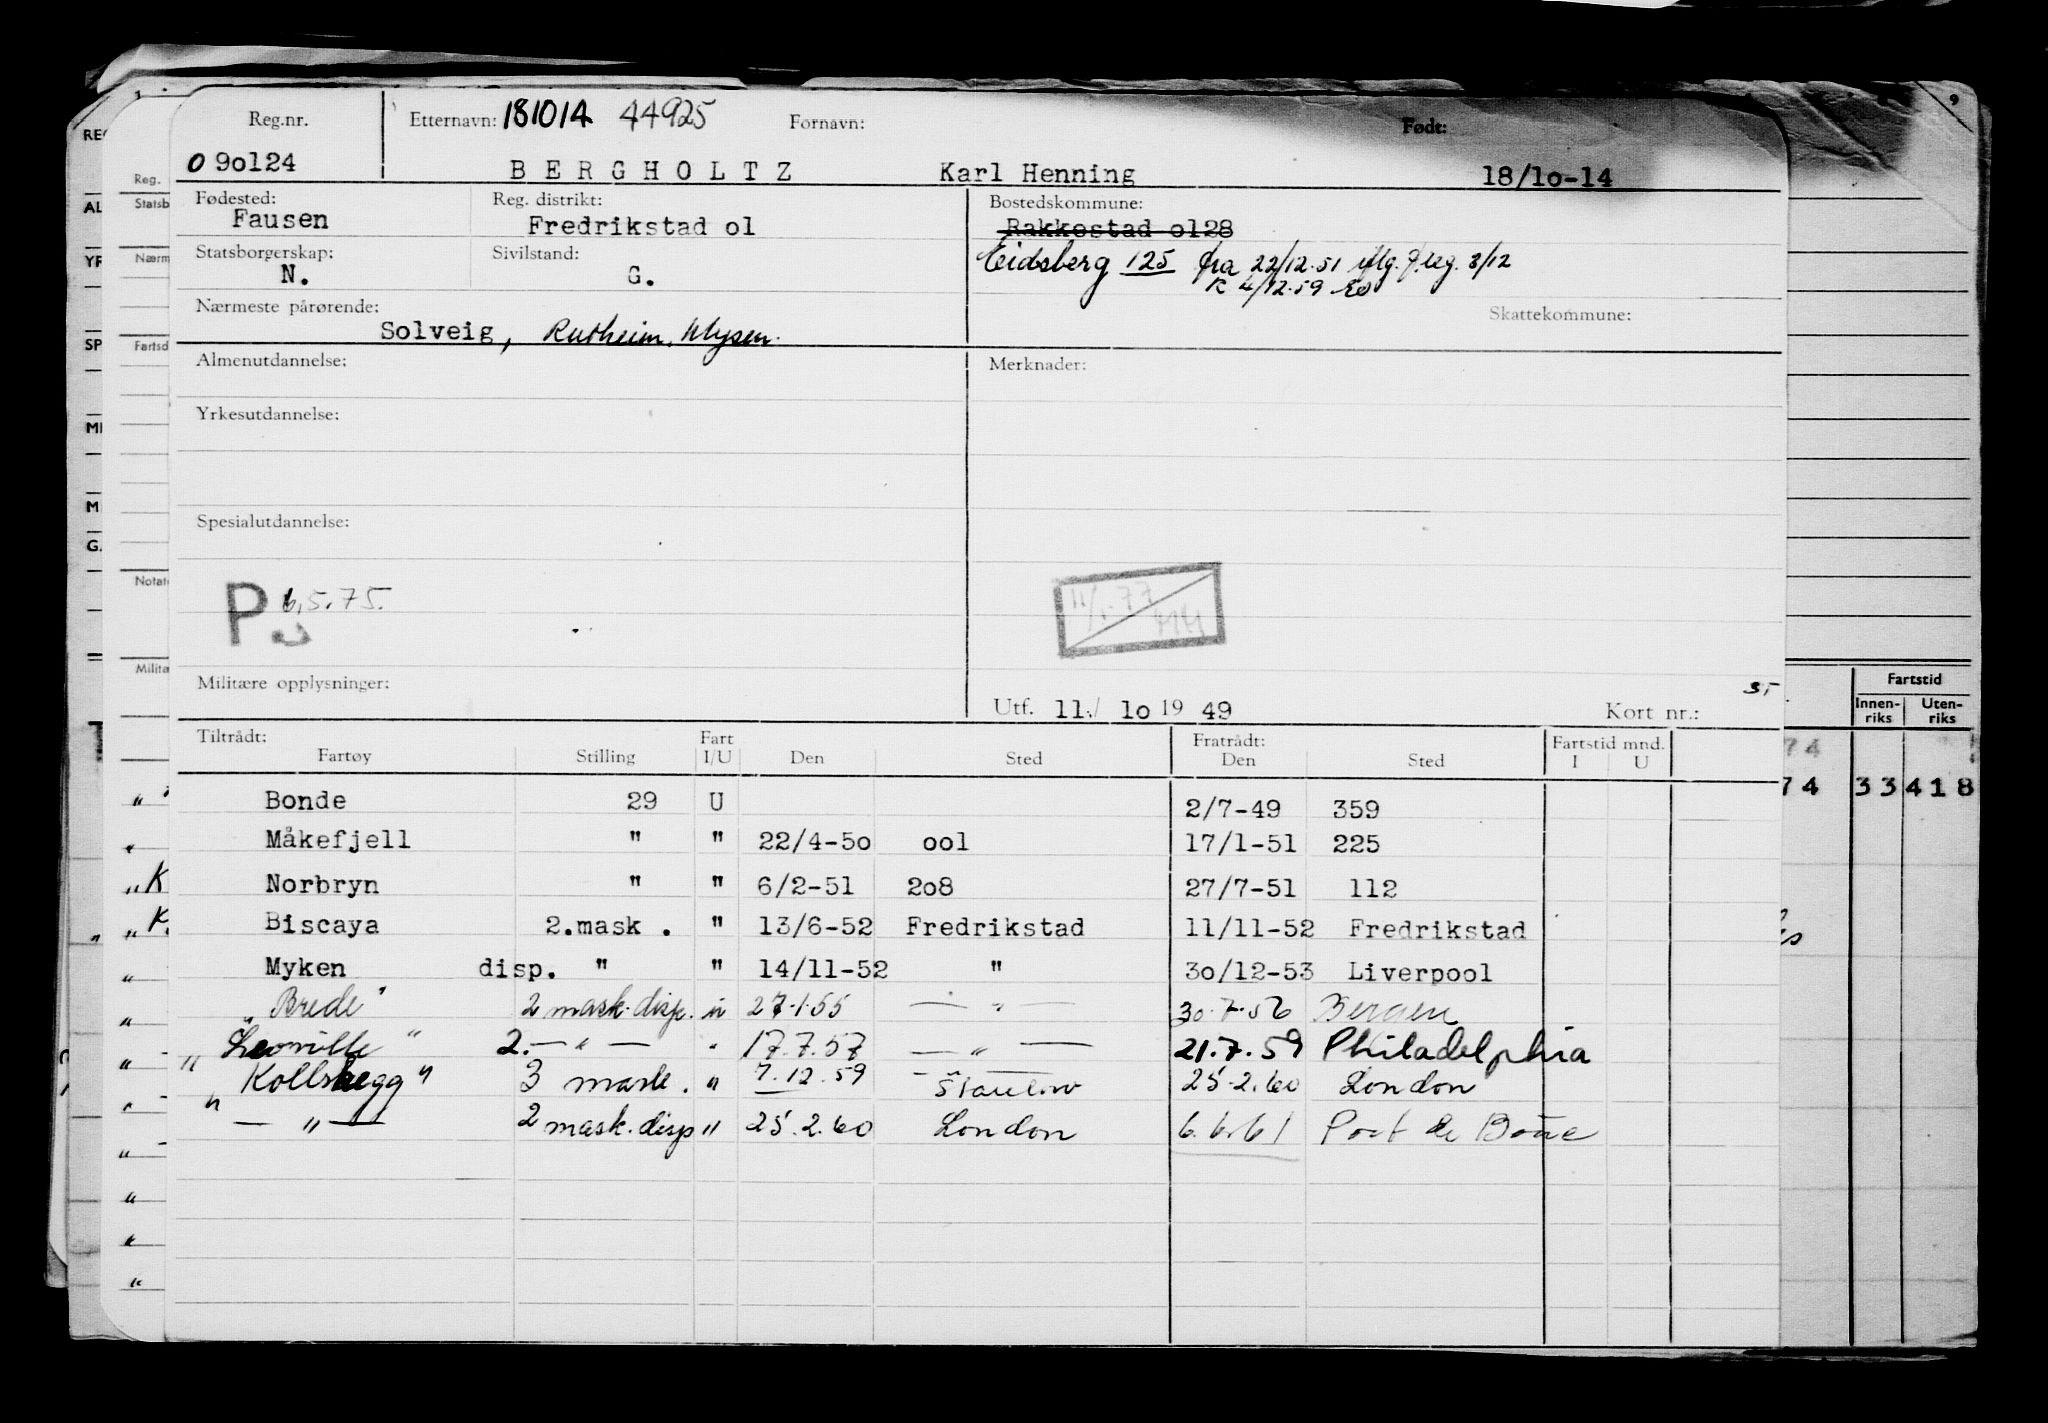 Reg.nr. Etternavn: 181014 44925 Fornavn: Født:
0 90124 BERGHOLTZ Karl Henning 18/10-14
Fødested: Reg. distrikt: Bostedskommune:
Fausen Fredrikstad 01 Rakkestad 0128
Statsborgerskap: Sivilstand: Eidsberg 125 fra 22/12.51 iflg. f.reg. 3/12
N. G. R 4/12.59
Nærmeste pårørende: Skattekommune:
Solveig, Mysen.
Almenutdannelse: Merknader:
Yrkesutdannelse:
Spesialutdannelse:
P 6.5.75.
11/1.77
Militære opplysninger:
Utf. 11./ 10 19 49 Kort nr.:
Tiltrådt: Fart Fratrådt: Fartstid mnd.
Fartøy Stilling I/U Den Sted Den Sted I U
Bonde 29 U 2/7-49 359
Måkefjell " " 22/4-50 001 17/1-51 225
Norbryn " " 6/2-51 208 27/7-51 112
Biscaya 2.mask . " 13/6-52 Fredrikstad 11/11-52 Fredrikstad
Myken disp. " " 14/11-52 " 30/12-53 Liverpool
"Brede" 2 mask.disp. u 27.1.55 — " — 30.7.56 Bergen
"Leoville" 2. — " — " 17.7.57 — " — 21.7.59 Philadelphia
"Kollskegg" 3 mask. " 7.12.59 Stanlow 25.2.60 London
— " — 2 mask.disp " 25.2.60 London 6.6.61 Port de Bouc
Fartstid
Innen- Uten-
riks riks
74
74 33 418
REG
Reg.
AL Statsb
YR Nærm
SP Fartsd
MI
M
GA
Notat
Milita